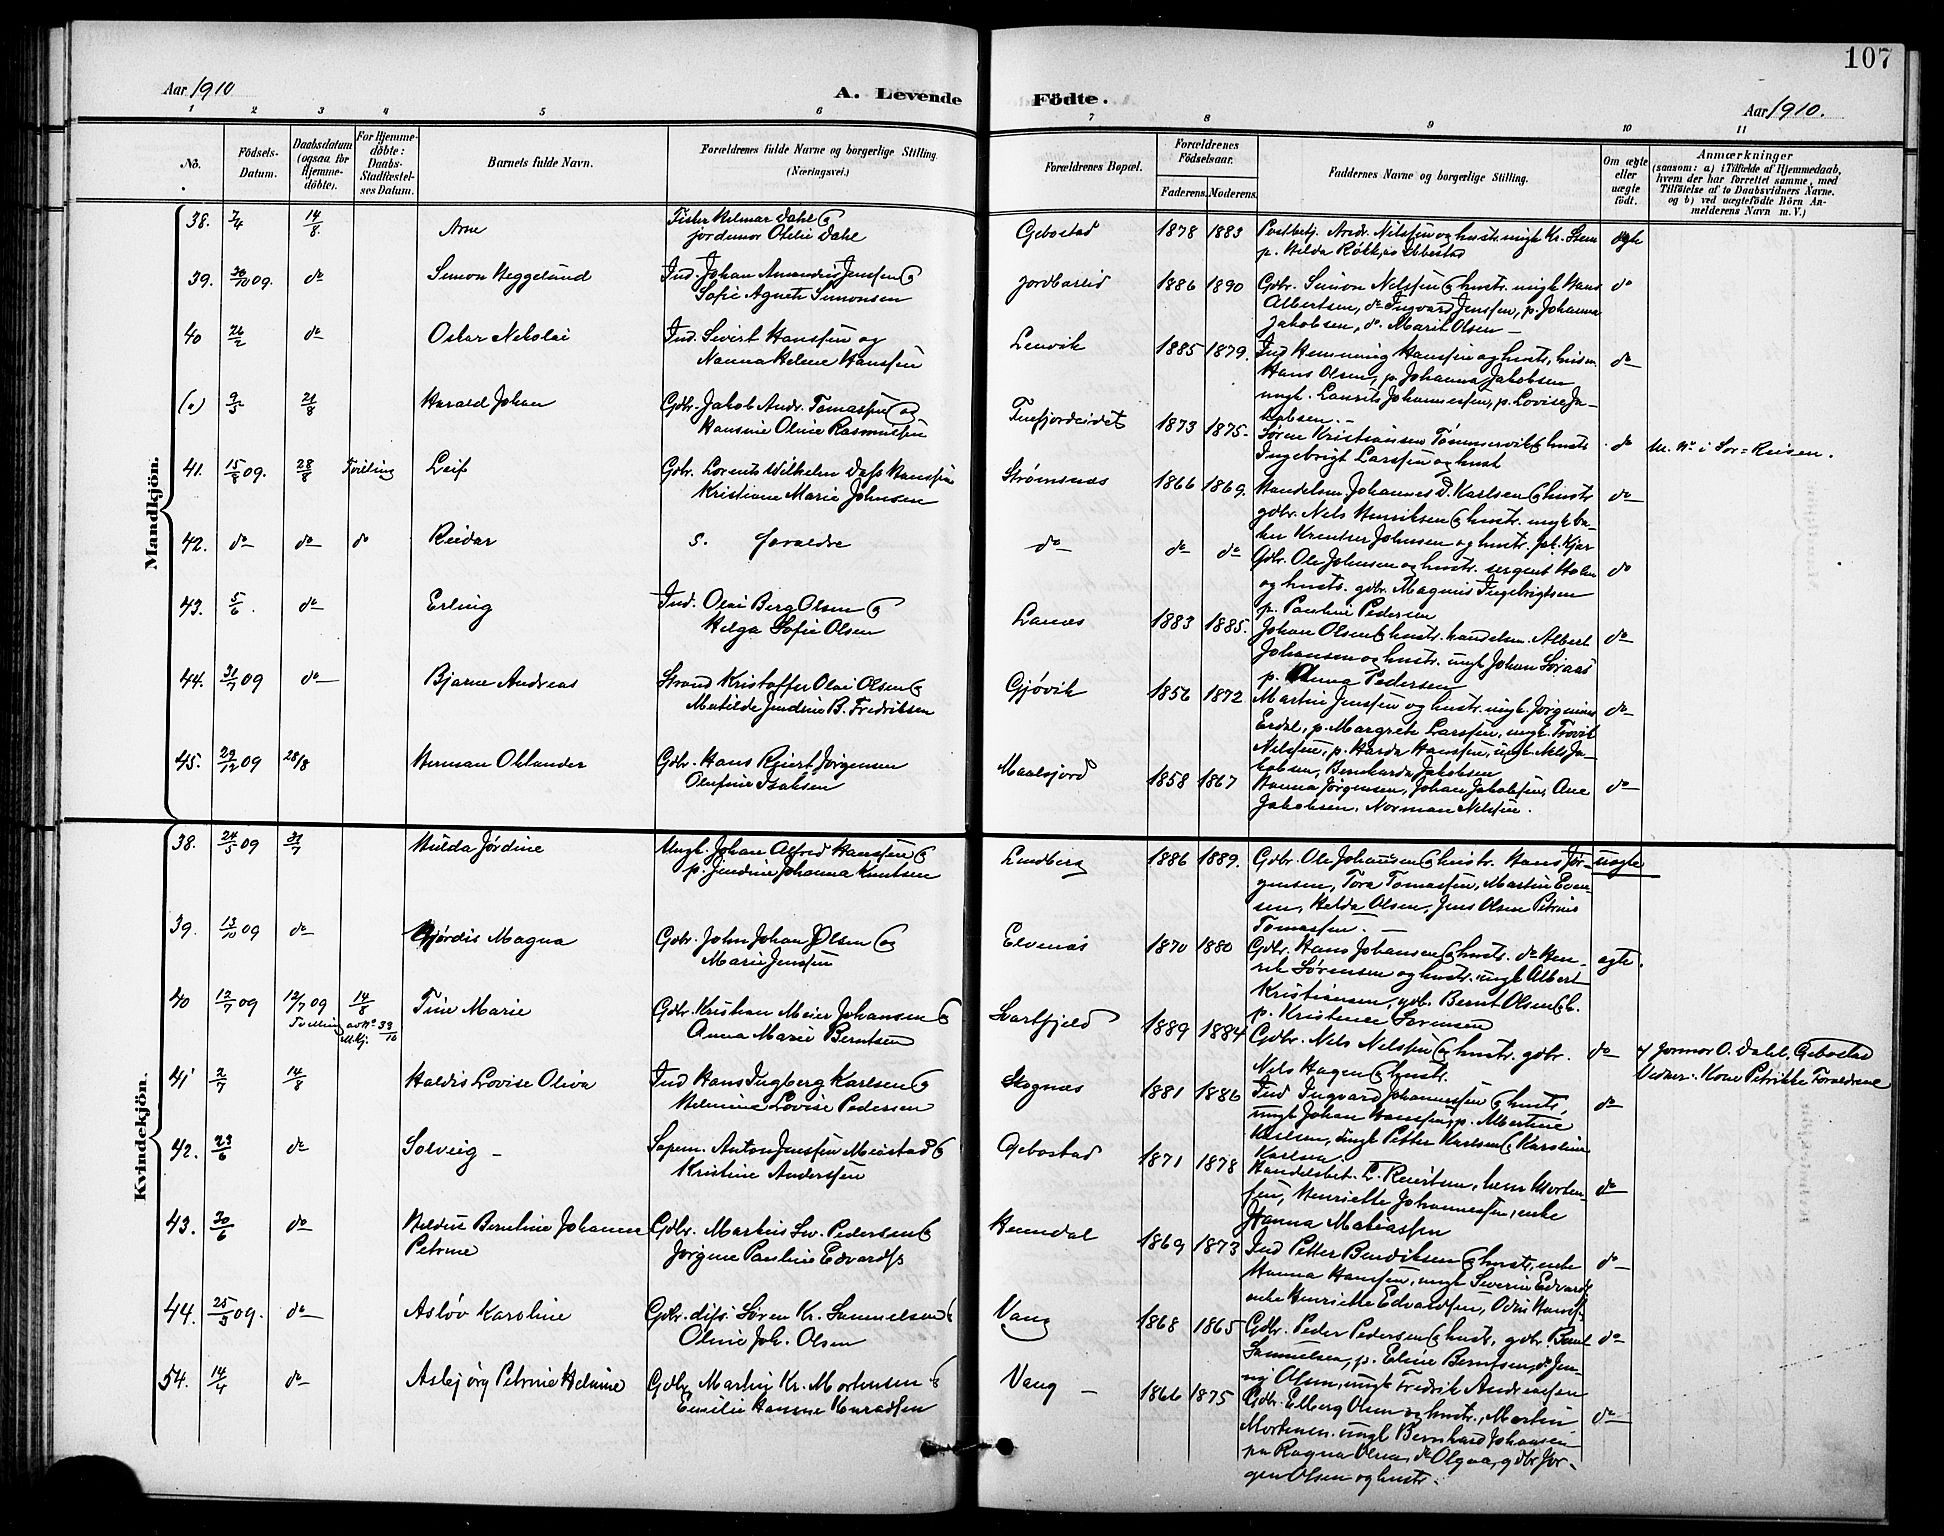 107
Aar 1910
A. Levende
Födte.
Aar 1910.
1 2 3 4 5 6 7 8 9 10 11
No.
Födsels-Datum.
Daabsdatum (ogsaa for Hjemmedöbte).
For Hjemmedöbte: Daabs-Stadfæstelses Datum.
Barnets fulde Navn.
Forældrenes fulde Navne og borgerlige Stilling. (Næringsvei.)
Forældrenes Bopæl.
Forældrenes Födselsaar.
Faderens. Moderens.
Faddernes Navne og borgerlige Stilling.
Om ægte eller uægte födt.
Anmærkninger
(saasom: a) i Tilfælde af Hjemmedaab, hvem der har forrettet samme, med Tilföielse af to Daabsvidners Navne. og b) ved uægtefödte Börn Anmelderens Navn m. V.)
Mandkjön.
38. 7/4 14/8. Arne Fisker Hilmar Dahl og
jordemor Otelie Dahl Gebostad 1878 1883 Postbetj. Andr. Nilssen og hustr. ungk Kr. Stem
p. Hilda Røkk, Ibbestad ægte
39. 30/10 09. do Simon Heggelund Ind. Johan Amandus Jenssen og
Sofie Agnete Simonsen Jordbarlid 1886 1890 Gdbr. Simon Nilssen og hustr. ungk Hans
Albertsen, do Ingvard Jenssen, p. Johanna
Jakobsen, do. Marit Olsen — do
40 26/2 do Oskar Nikolai Ind. Sivert Hanssen og
Nanna Helene Hanssen Lenvik 1885 1879. Ind Hemming Hanssen og hustr,
Hans Olsen, p. Johanna Jakobsen
ungk. Laurits Johannessen, p. Lovise Jakobsen. — do
9/5 21/8 Harald Johan Gdbr. Jakob Andr. Tomassen og
Hansine Oline Rasmussen Finfjordeidet 1873 1875. Søren Kristiansen Tømmervik og hustr
Ingebrigt Larssen og hust do M. No i Sør=Reisen.
41. 15/8 09. 28/8 Tvilling Leif Gdbr. Lorents Wilhelm Dass Hanssen
Kristiane Marie Johnsen Strømsnæs 1866 1869. Handelsm. Johannes D. Karlsen og hustr
gdbr. Nils Henriksen og hustr. do
42. do do do Reidar s. foraldre do do do Gdbr. Ole Johnsen og hustr. sergent Holm
og hustr. gdbr. Magnus Ingebrigtsen
p. Pauline Pedersen do
43. 5/6. do Erling Ind. Olai Berg Olsen og
Helga Sofie Olsen Lanes 1883 1885. Johan Olsen og hustr. handelsm. Albert
Johansen og hustr. ungk Johan Soraas
p. Anna Pedersen do
44. 31/7 09 do Bjarne Andreas Strand Kristoffer Olai Olsen og
Matilde Jendine B. Fredriksen Gjøvik 1856 1872 Martin Jenssen og hustr. ungk. Jørginius
Erdal, p. Margrete Larssen, ungk
Nilssen, p. Harda Hanssen, ungk. Nils Jakobsen, Bernharda Jakobsen do
45. 29/12 09 28/8 Herman Oklander Gdbr. Hans Reiert Jørgensen
Olufine Isaksen Maalsjord 1858 1867 Hanna Jørgensen, Johan Jakobsen, Ane
Jakobsen, Norman Nilssen. do
Kvindekjön.
38. 24/5 09 31/7 Hulda Jørdine Ungk. Johan Alfred Hanssen og
p. Jendine Johanna Knutsen Lundberg 1886 1889. Gdbr. Ole Johansen og hustr. Hans Jørgensen, Tora Tomassen, Martin Evensen, Helda Olsen, Jens Olsen Petrine
Tomassen. — uægte
39. 13/10 09 do Hjørdis Magna Gdbr. John Johan Olsen og
Marie Jenssen Elvenæs 1870 1880 Gdbr. Hans Johansen og hustr. do Henrik Sørensen og hustr. ungk Albert
Kristiansen, gdb. Bernt Olsen og h.
p. Kristence Sørensen ægte.
40 12/7 09 12/7 09 14/8 Tvilling av No 39/10 M.kj. Tine Marie Gdbr. Kristian Meier Johansen og
Anna Marie Berntsen Svartfjeld 1889 1884 Gdbr. Nils Nilssen og hustr. gdbr.
Nils Hagen og hustr. do af Jormor O. Dahl, Gebostad
Vidner: Kone Petrikke Foraldrene
41 2/7 14/8 Haldis Lovise Oliva Ind Hans Ingberg Karlsen og
Helmine Lovise Pedersen Skognæs 1881 1886 Ind Ingvard Johannessen og hustr,
ungk Johan Hanssen, p. Albertine
Karlsen, ungk Petter Karlsen og Karoline
Karlsen. do
42. 23/6 do Solveig — Sopem. Anton Jenssen Meistad og
Kristine Anderssen Gebostad 1871 1878 Handelsbet. L. Reiertsen, hem Mortensen, Henriette Johannessen, enke
Hanna Matiassen do
43. 30/6 do Heldis Berntine Johanne
Petrine Gdbr. Martius Lu. Pedersen og
Jørgine Pauline Edvards Hemdal 1869 1873 Ind Petter Bendiksen og hustr, enke
Hanna Hanssen, ungk Severin Edvards
enke Henriette Edvardsen, Odin Hanss. do
44. 25/5 09. do Asløv Karoline Gdbr. difs. Søren Kr. Samuelsen og
Oline Joh. Olsen Vang 1868 1865 Gdbr. Peder Pedersen og hustr, gdbr. Bernt
Samuelsen, p. Eline Berntsen, do Jenny Olsen, ungk Fredrik Andreassen do
54. 14/4 do Asbjørg Petrine Helmine Gdbr Martin Kr. Mortensen og
Emilie Hanne Konradsen Vang — 1866 1875 Gdbr. Elberg Olsen og hustr., Martin
Mortensen. ungk Bernhard Johansen
pn Ragna Olsen, do Olgna, gdbr Jørgen Olsen og hustr. do